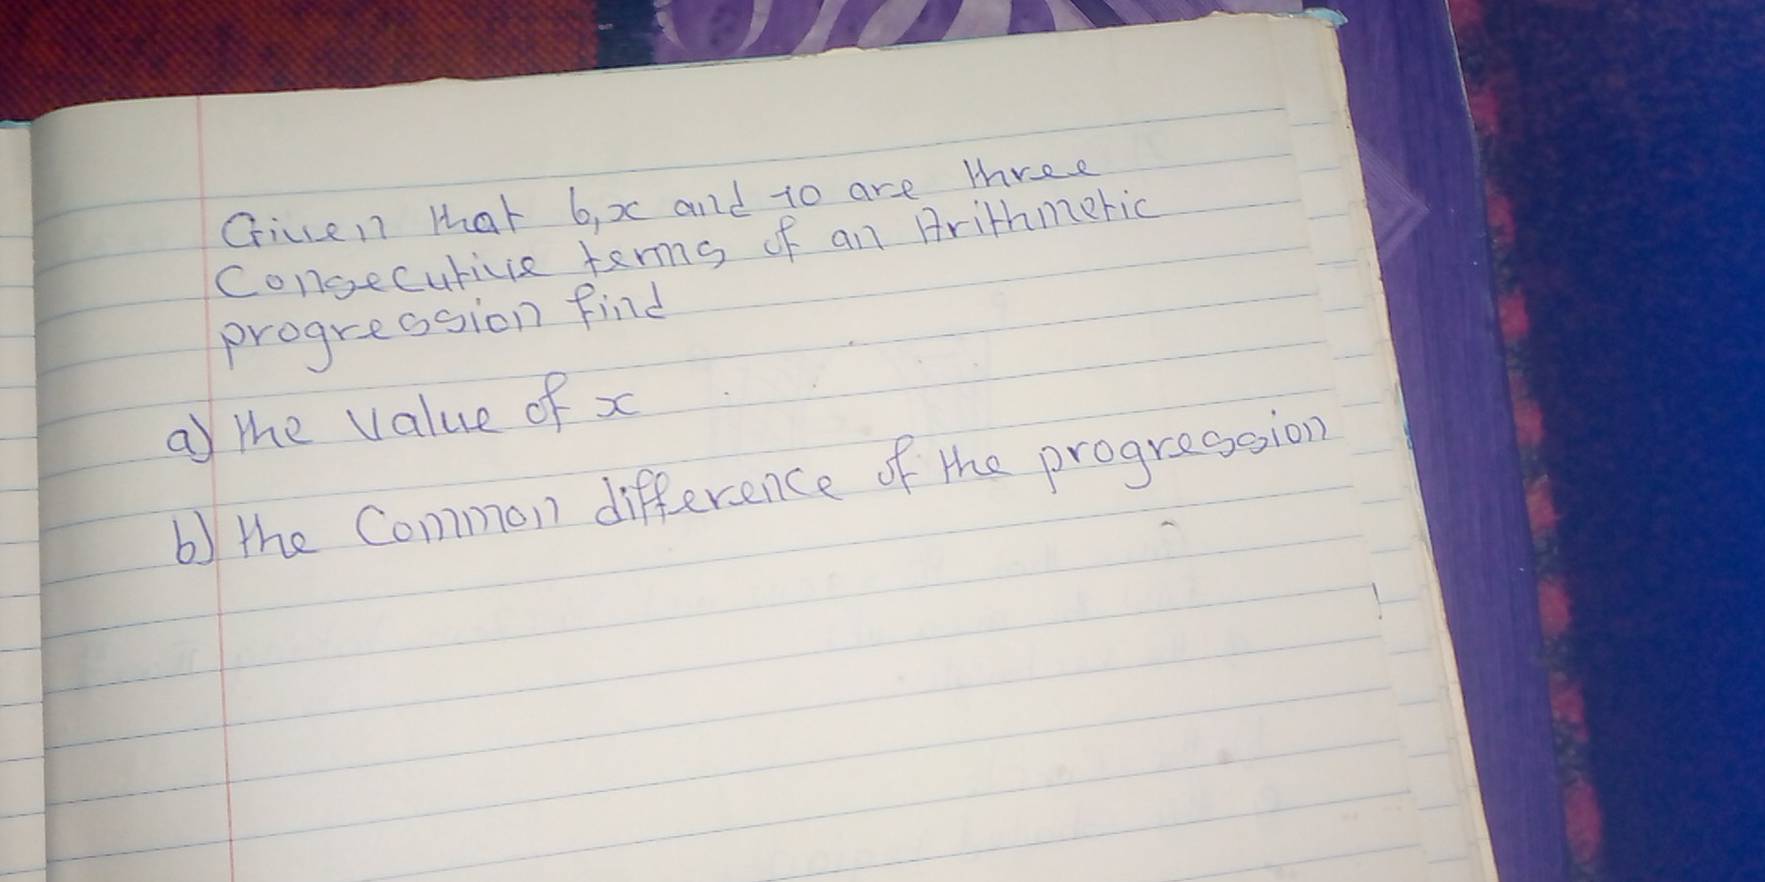 Given that 6, x and 10 are three
Consecutive terms of an Arithmetic
progression find
a) the value of x
b) the Common difference of the progression